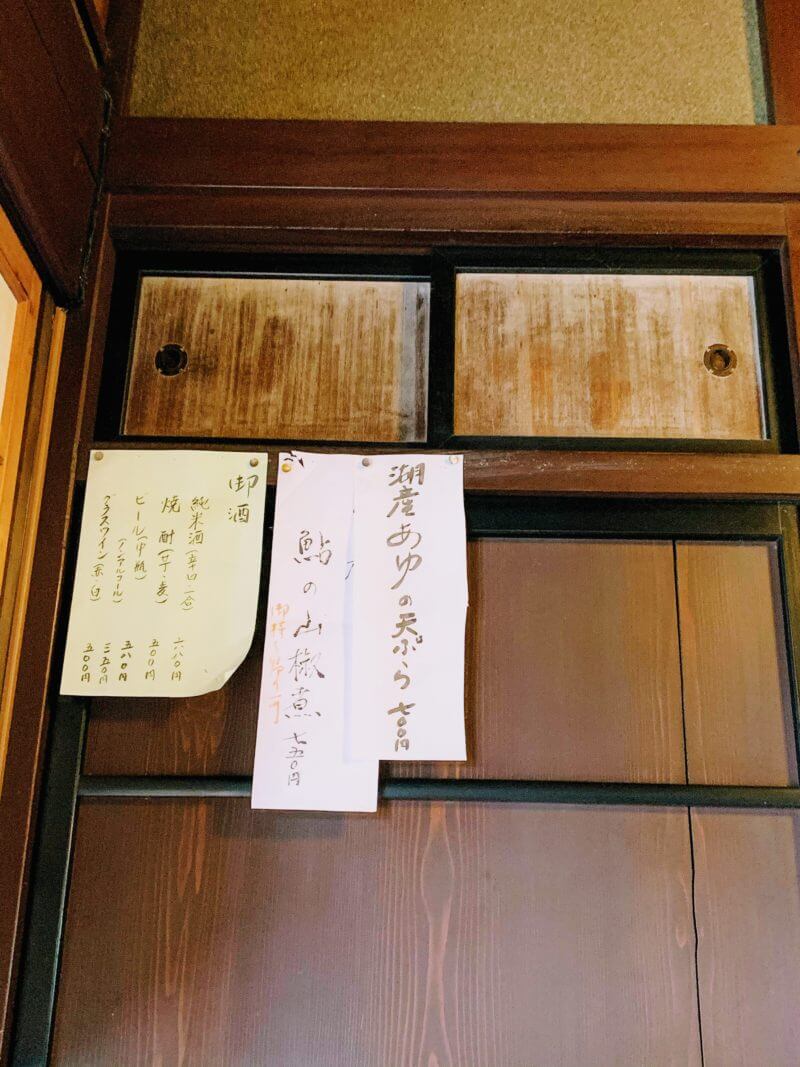 湖産あゆの天ぷら 七〇〇円
鮎の山椒煮 七五〇円
御持ち帰り可
御酒
純米酒 一合) 六八〇円
焼酎(芋・麦) 五〇〇円
ビール(中瓶) 五八〇円
(ノンアルコール) 三五〇円
グラスワイン(赤・白) 五〇〇円